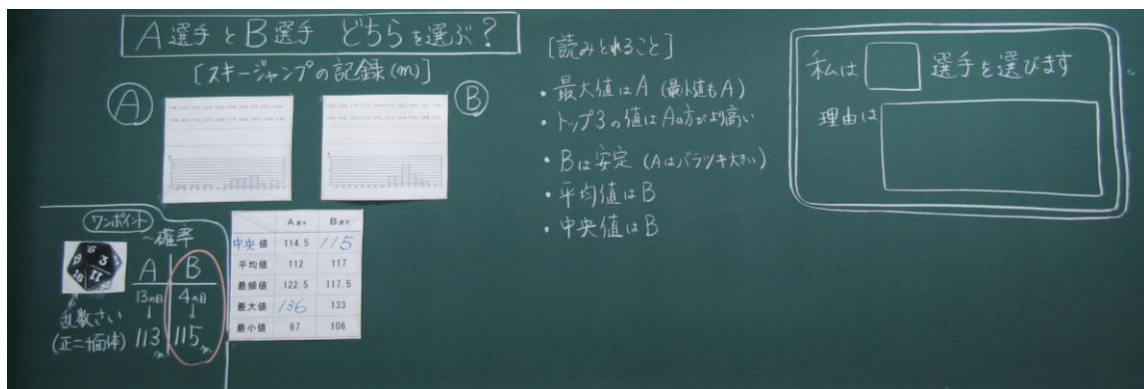 A選手とB選手 どちらを選ぶ?
[スキージャンプの記録(m)]
A
B
ワンポイント
~確率
A B
13の目 4の目
↓ ↓
113m 115m
乱数さい
(正二十面体)
A選手 B選手
中央値 114.5 115
平均値 112 117
最頻値 122.5 117.5
最大値 136 133
最小値 67 106
[読みとれること]
・最大値はA(最小値もA)
・トップ3の値はAの方がより高い
・Bは安定(Aはバラツキ大きい)
・平均値はB
・中央値はB
私は 選手を選びます
理由は